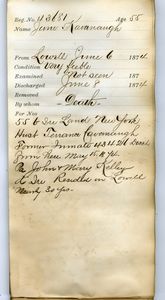 Reg. No. 43651 Age 55
Name Jane Kavanaugh
From Lowell June 6 1874
Condition Very feeble
Examined Not seen 187
Discharged June 8 1874
Removed 187
By whom Death
For No
55 b Ire Land New York
Hust Terrance Cavanaugh
Former Inmate
From Here May 15
John + Mary Kelley
d Ire Resided in Lowell
Nearly 30 yrs.